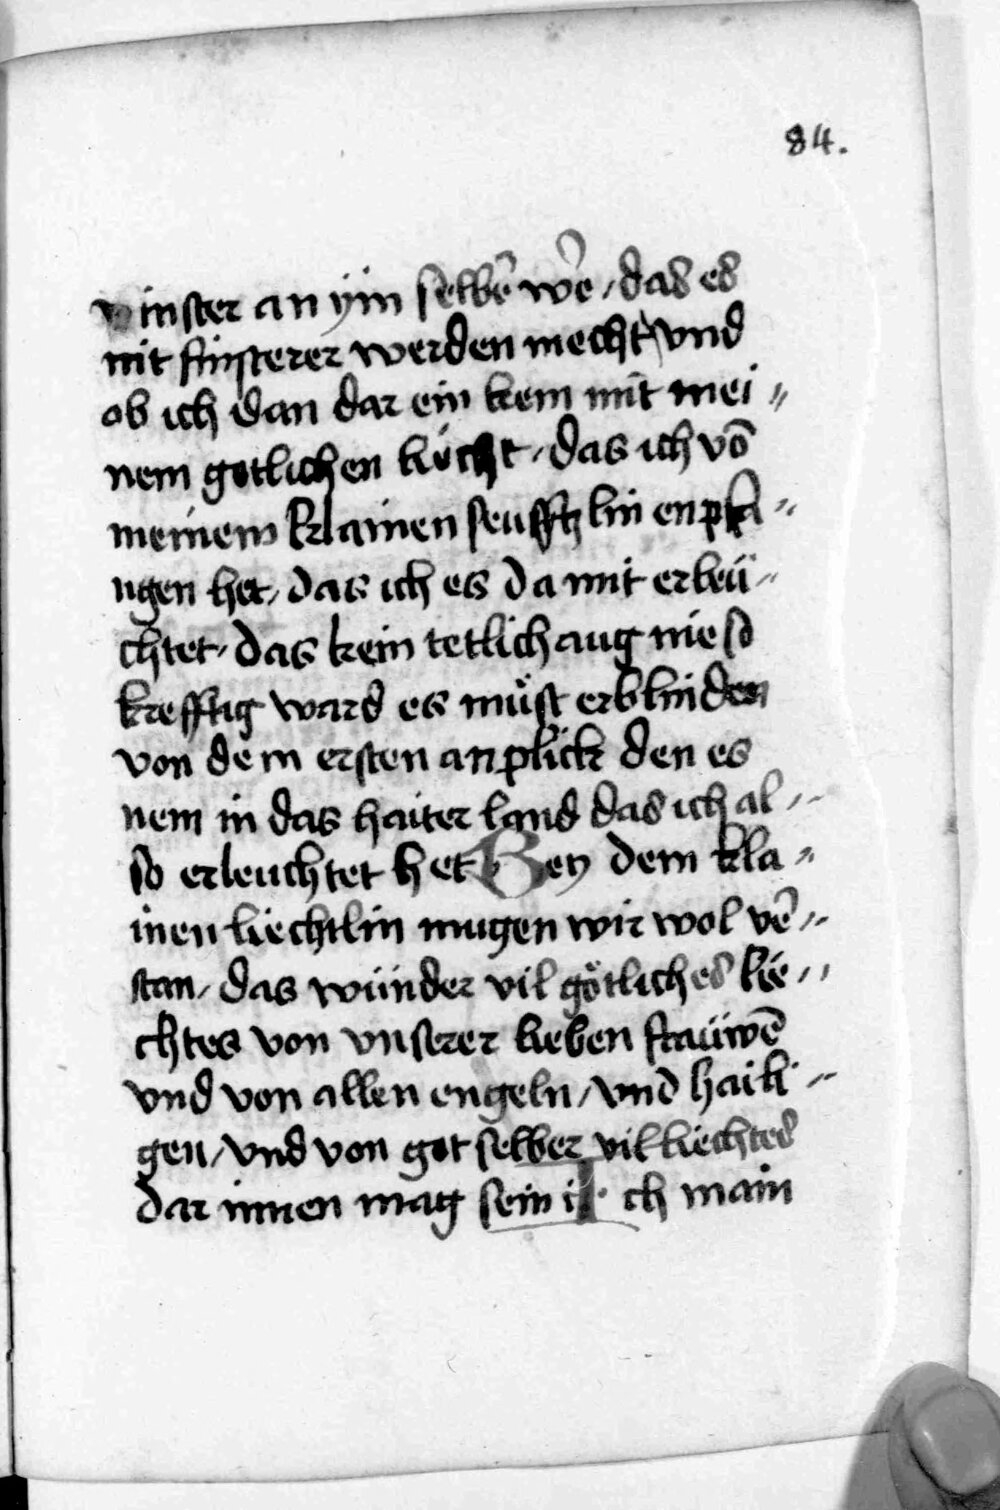 84.
vinster an ÿm selbē wē / das es
nit finsterer werden mecht / vnd
ob ich dan dar ein kem mit mei〃
nem gotlichen liecht / das ich vō
meinem klainen seufftzlin enpfa〃
ngen het / das ich es da mit erleü〃
chtet / das kein tetlich aug nie so
krefftig ward es müst erblinden
von dem ersten anplick den es
nem in das haiter land das ich al〃
so erleuchtet het Bey dem kla〃
inen liechtlin mugen wir wol vē〃
stan / das wunder vil götliches lie〃
chtes von vnserer lieben frauwē
vnd von allen engeln / vnd haili〃
gen / vnd von got selber vil liechtes
dar innen mag sein Ich main